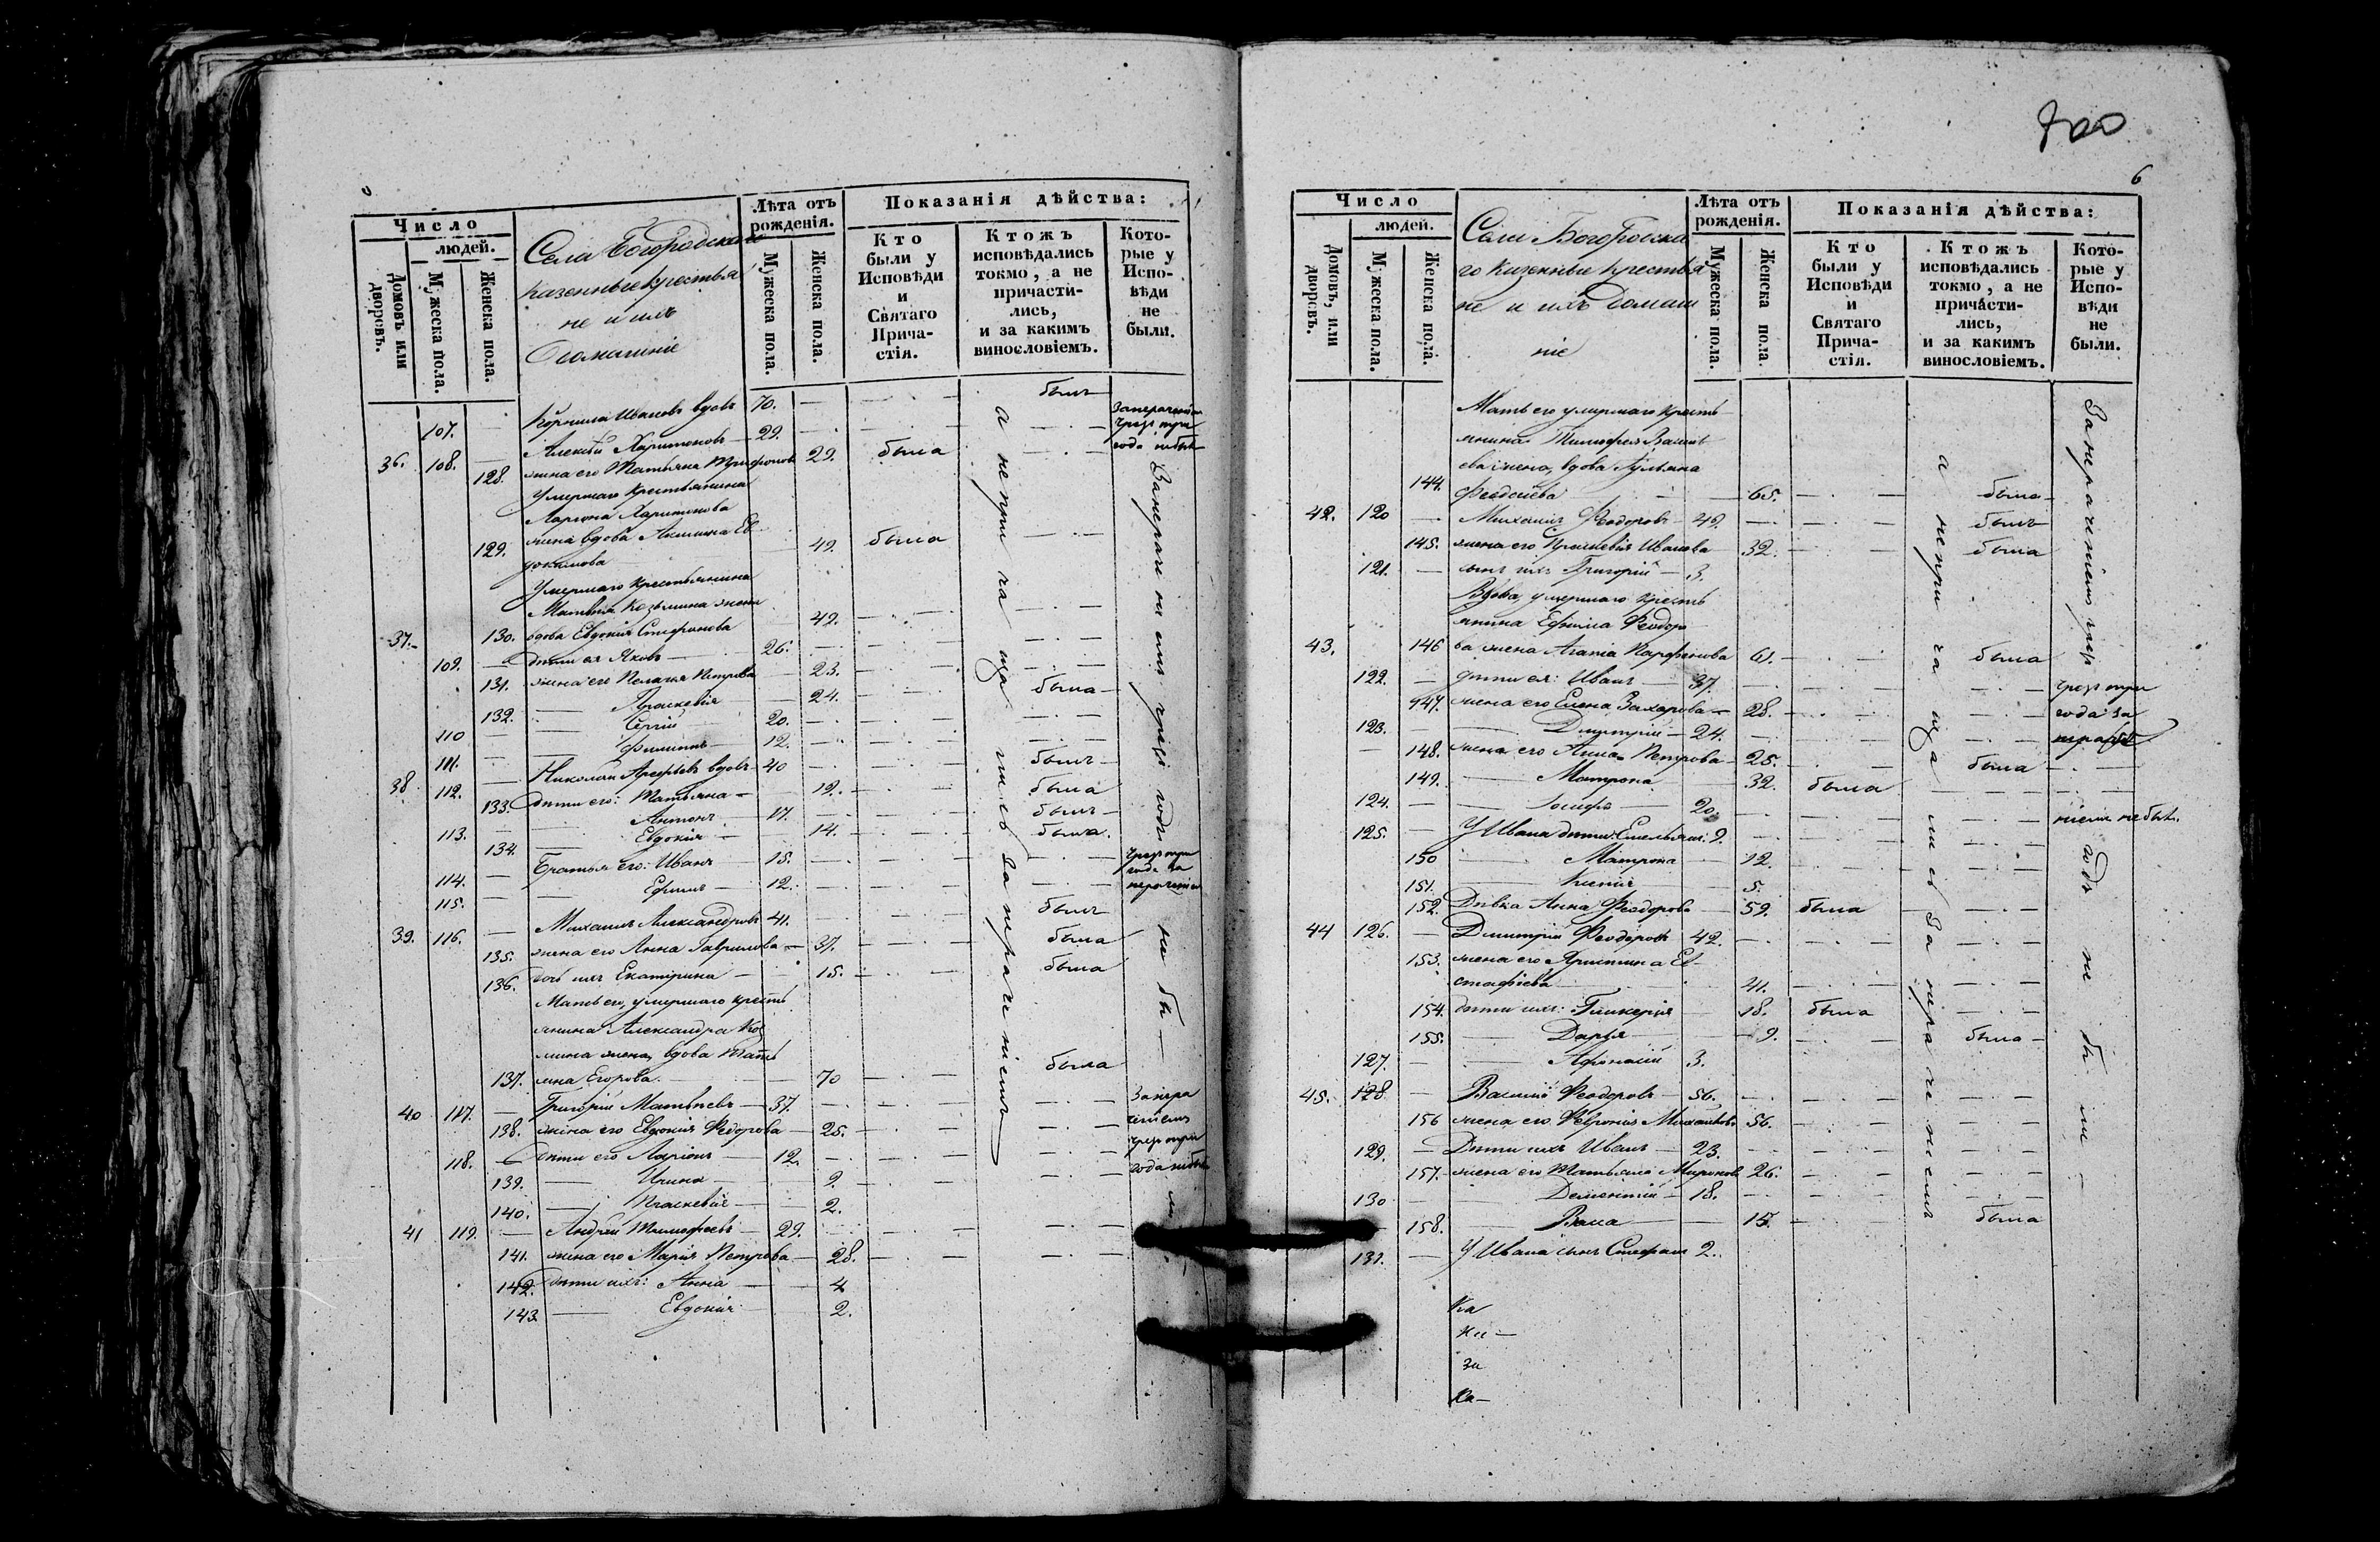 Число
людей.
Домовъ или дворовъ.
Мужеска пола.
Женска пола.
Села Богородскаго
казенные крестья
не и ихъ
Домашніе
Лѣта отъ рожденія.
Мужеска пола.
Женска пола.
Показанія дѣйства:
Кто были у Исповѣди и Святаго Причастія.
Ктожъ исповѣдались токмо, а не причастились, и за какимъ винословіемъ.
Которые у Исповѣди не были.
107. — Корнила Ивановъ вдовъ 70. — былъ
36. 108. — Алексѣй Харитоновъ — 29.
128. жена его Татьяна Трифонов 29. была
Умершаго крестьянина
Харитонова
129. жена вдова Ев
докимова 49. была
Умершаго крестьянина
Матвѣя Козьмина жена
37. 130. вдова Евдокия Стефанова 49.
109. — дѣти ея Яковъ — 26.
131. жена его Пелагея Петрова — 23.
132. — Праскевія — 24. была
110 — Сергій — 20.
111. — Филиппъ — 12.
38 112. — Николай Арефьевъ вдовъ 40 былъ
133. дѣти его: Татьяна — 19. была
113. — Антонъ — 17. былъ
134. — Евдокія — 14. была.
114. — Братья его: Иванъ — 15.
115. — Ефимъ — 12.
39. 116. — Михаилъ Александровъ 41. былъ
135. жена его Анна Гаврилова — 37. была
136. дочь ихъ Екатерина — 15. была
Мать его, умершаго кресть
янина Александра Коз
мина жена, вдова Тать
137. яна Егорова. — 70 была
40 117. — Григорій Матвѣевъ — 37.
138. жена его Евдокия Федорова — 25.
118. — дѣти его Ларіонъ — 12.
139. — Ирина — 9.
140. — Праскевія — 2.
41 119. — Андрей Тимофеевъ — 29.
141. жена его Марія Петрова — 28.
142. дѣти ихъ: Анна — 4
143. — Евдокія — 2.
а не причащались за нерачениемъ
За нерачениемъ чрезъ годъ не были
6
Число
людей.
Домовъ, или дворовъ.
Мужеска пола.
Женска пола.
Села Богородска
го казенные крестья
не и ихъ домаш
ніе
Лѣта отъ рожденія.
Мужеска пола.
Женска пола.
Показанія дѣйства:
Кто были у Исповѣди и Святаго Причастія.
Ктожъ исповѣдались токмо, а не причастились, и за какимъ винословіемъ.
Которые у Исповѣди не были.
Мать его умершаго кресть
янина Тимофея Васил
ева жена, вдова Ульяна
144. Феодосиева — 65. была
42. 120 — Михаилъ Феодоровъ — 49. былъ
145. жена его Праскевія Иванова 32. была
121. — сынъ ихъ Григорій — 3.
Вдова, умершаго кресть
янина Ефима Феодоро
43. 146 ва жена Агапія Парфенова 61. была
122. — дѣти ея: Иванъ — 37.
147. жена его Елена Захарова — 28.
123. — Дмитрій — 24.
148. жена его Анна Петрова — 25. была
149. — Матрона — 32. была
124. — Іосифъ — 20.
125. — У Ивана дѣти: Емельянъ. 9.
150 — Матрона — 12.
151. — Ксенія — 5.
152. Дѣвка Анна Феодорова 59. была
44 126. — Дмитрій Феодоровъ 42.
153. жена его Христина Ев-
стафіева 41.
154. дѣти ихъ: Гликерія 18. была
155. — Дарья — 9. была
127. — Афанасій 3.
45. 128 — Василій Феодоровъ — 56.
156 жена его Февронія Михайлова 56.
129. — Дѣти ихъ Иванъ — 23.
157. жена его Татьяна Миронова 26.
130 — Дементій — 18.
158. — Васса — 15. была
131. — У Ивана сынъ Стефанъ 2.
а не причащались за нерачениемъ
За нерачениемъ чрезъ годъ не были
Ка
за
Ка—